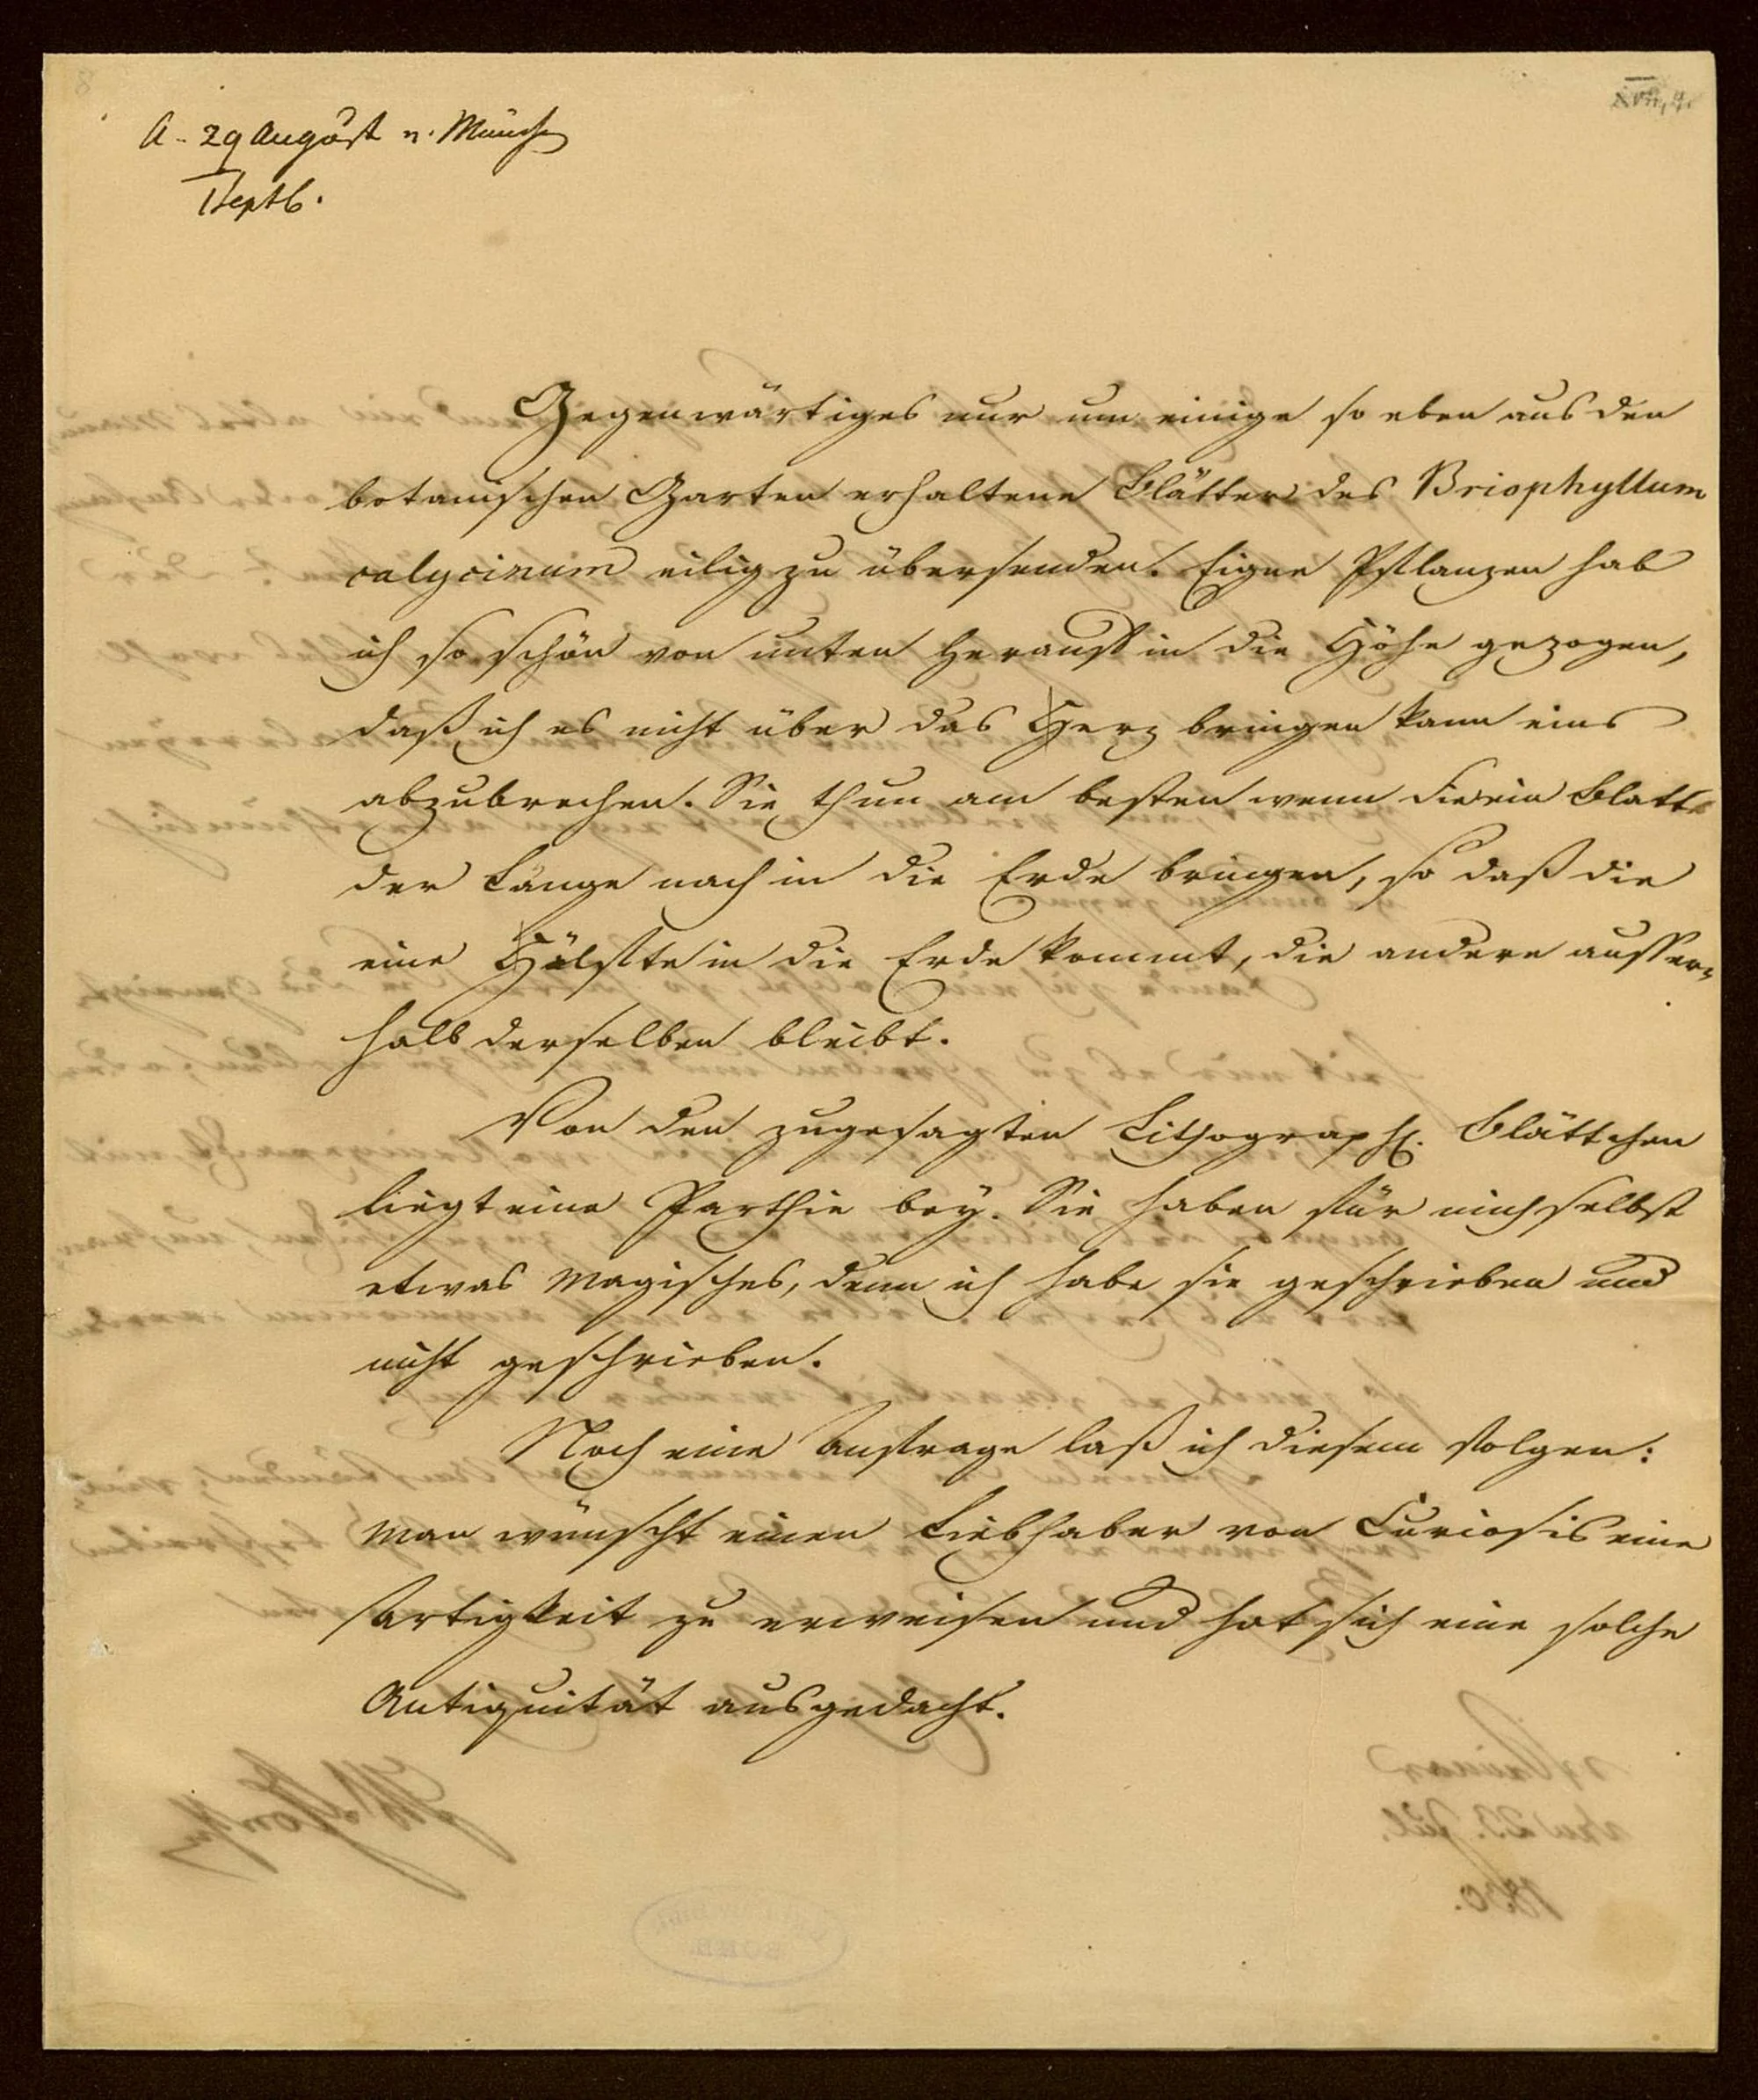 A. 29 August n. Münch
1 Septb.
Gegenwärtiges nur um einige so eben aus den
botanischen Garten erhaltene Blätter des Briophyllum
calycinum eilig zu übersenden. Eigne Pflanzen hab
ich so schön von unten herauf in die Höhe gezogen,
daß ich es nicht über das Herz bringen kann eins
abzubrechen. Sie thun am besten wenn Sie ein Blatt
der Länge nach in die Erde bringen, so daß die
eine Hälfte in die Erde kommt, die andere ausser-
halb derselben bleibt.
Von den zugesagten Lithograph. Blättchen
liegt eine Parthie bey. Sie haben für mich selbst
etwas magisches, denn ich habe sie geschrieben und
nicht geschrieben.
Noch eine Anfrage laß ich diesem folgen:
man wünscht einen Liebhaber von Curiosis eine
Artigkeit zu erweisen und hat sich eine solche
Antiquität ausgedacht.